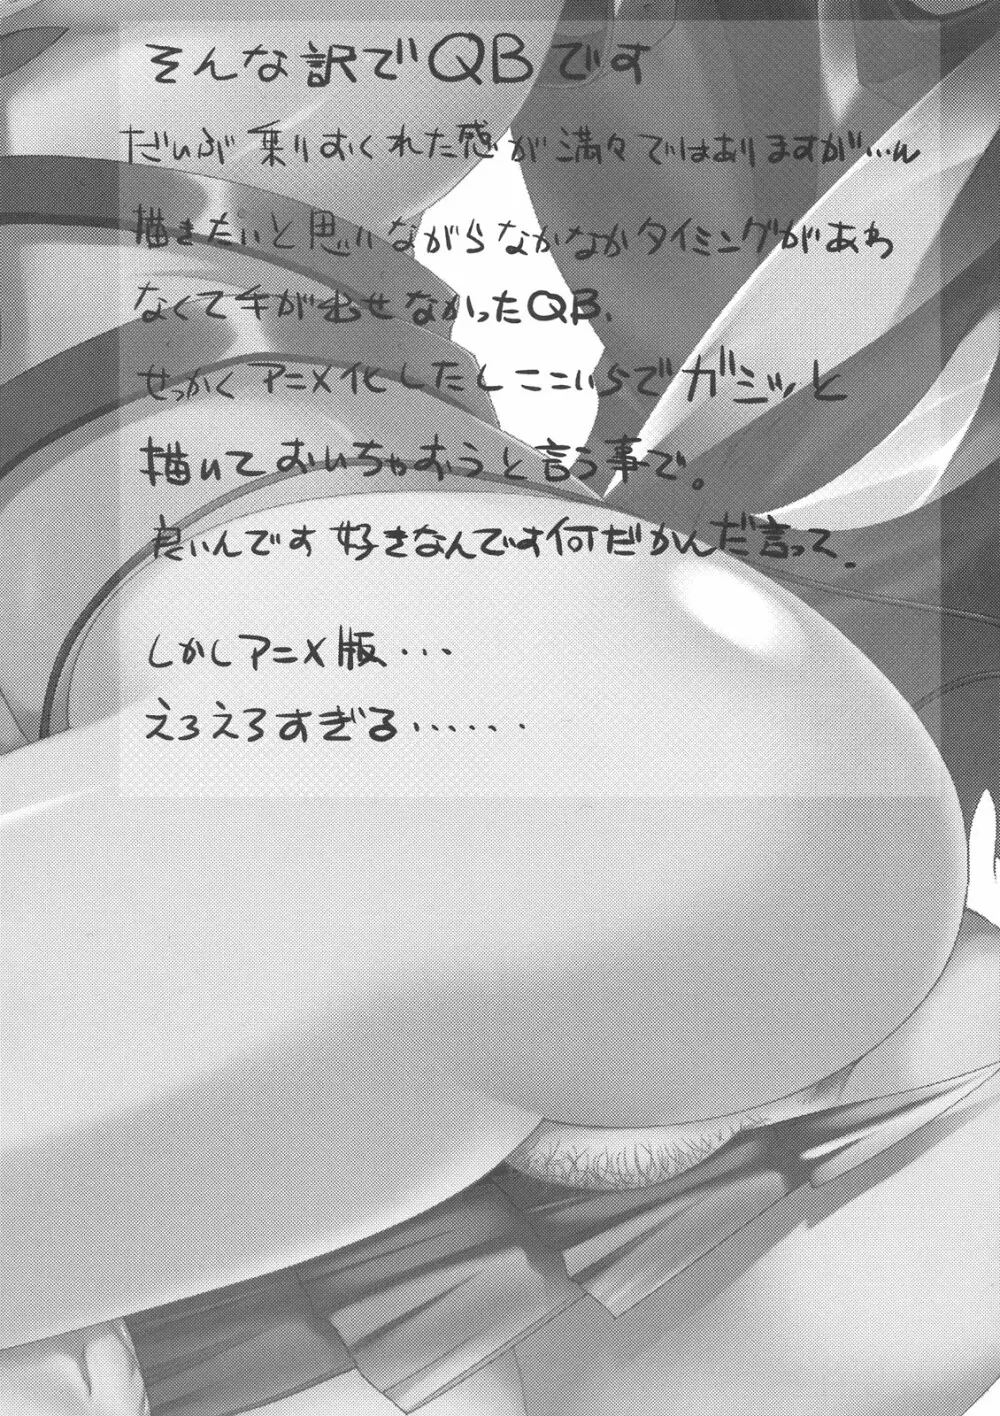 そんな訳でQBです
だいぶ乗りおくれた感が満々ではありますが…ん
描きたいと思いながらなかなかタイミングがあわ
なくて手が出せなかったQB、
せっかくアニメ化したしここいらでガシッと
描いておいちゃおうと言う事で。
良いんです好きなんです何だかんだ言って。
しかしアニメ版・・・
えろえろすぎる・・・・・・